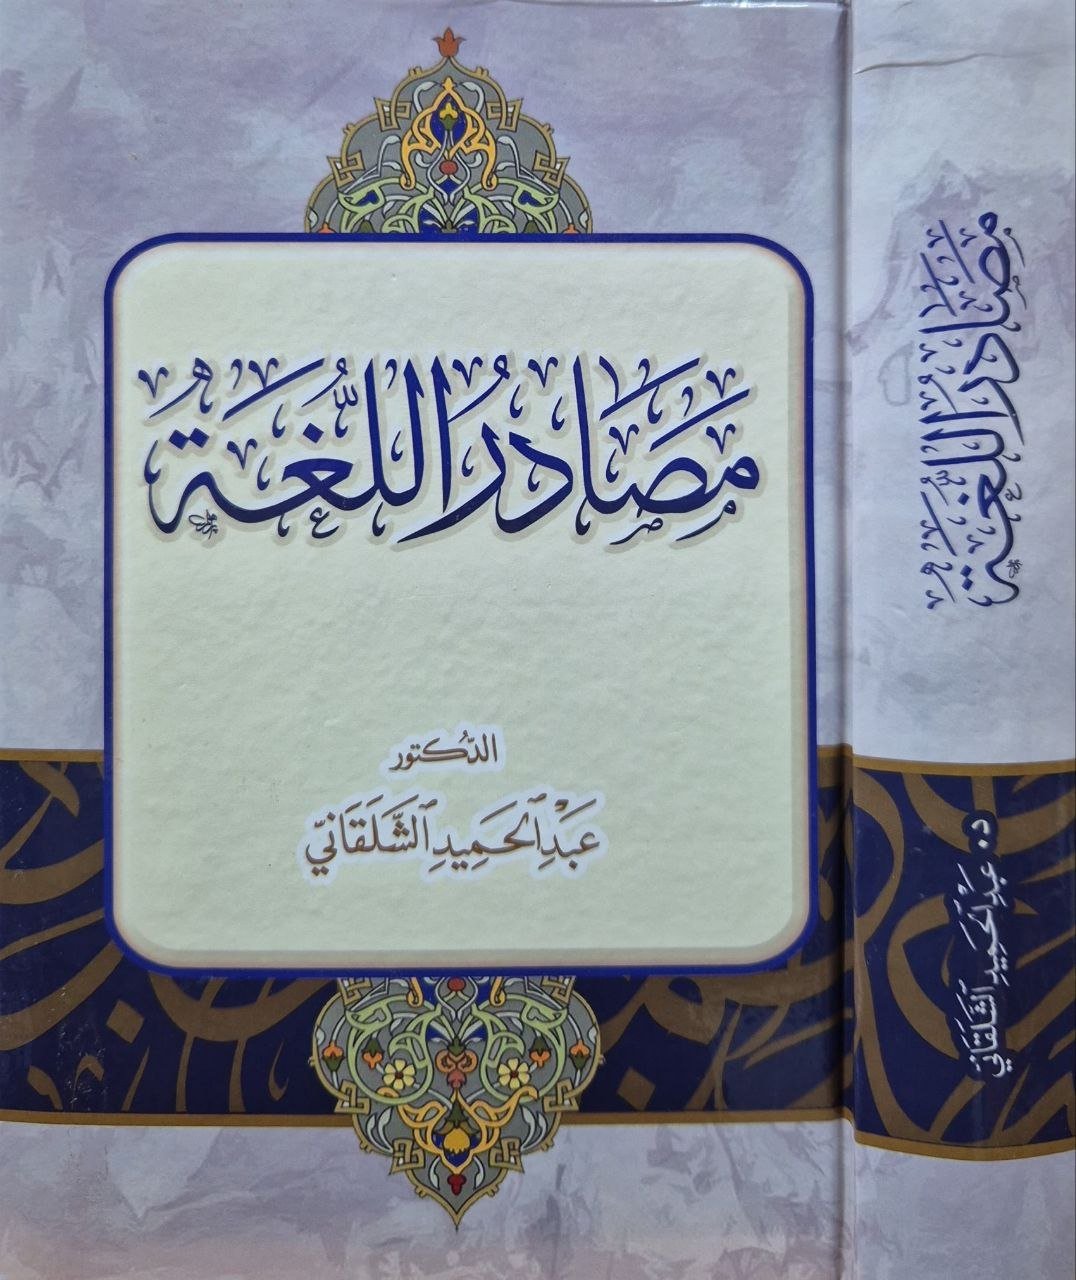 مَصَادِرُ اللُّغَةِ
الدُّكتور
عَبْدِ الحَمِيدِ الشَّلَقَانِيّ
مَصَادِرُ اللُّغَةِ
د. عَبْدِ الحَمِيدِ الشَّلَقَانِيّ